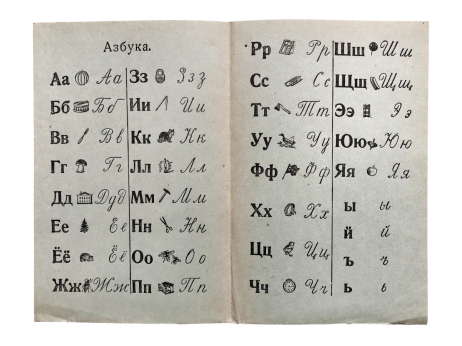 Азбука.
Аа Аа
Бб Бб
Вв Вв
Гг Гг
Дд Ддд
Ее Ее
Ёё Ёё
Жж Жж
Зз Ззз
Ии Ии
Кк Кк
Лл Лл
Мм Мм
Нн Нн
Оо Оо
Пп Пп
Рр Рр
Сс Сс
Тт Тт
Уу Уу
Фф Фф
Хх Хх
Цц Цц
Чч Чч
Шш Шш
Щщ Щщ
Ээ Ээ
Юю Юю
Яя Яя
ы ы
й й
ъ ъ
ь ь